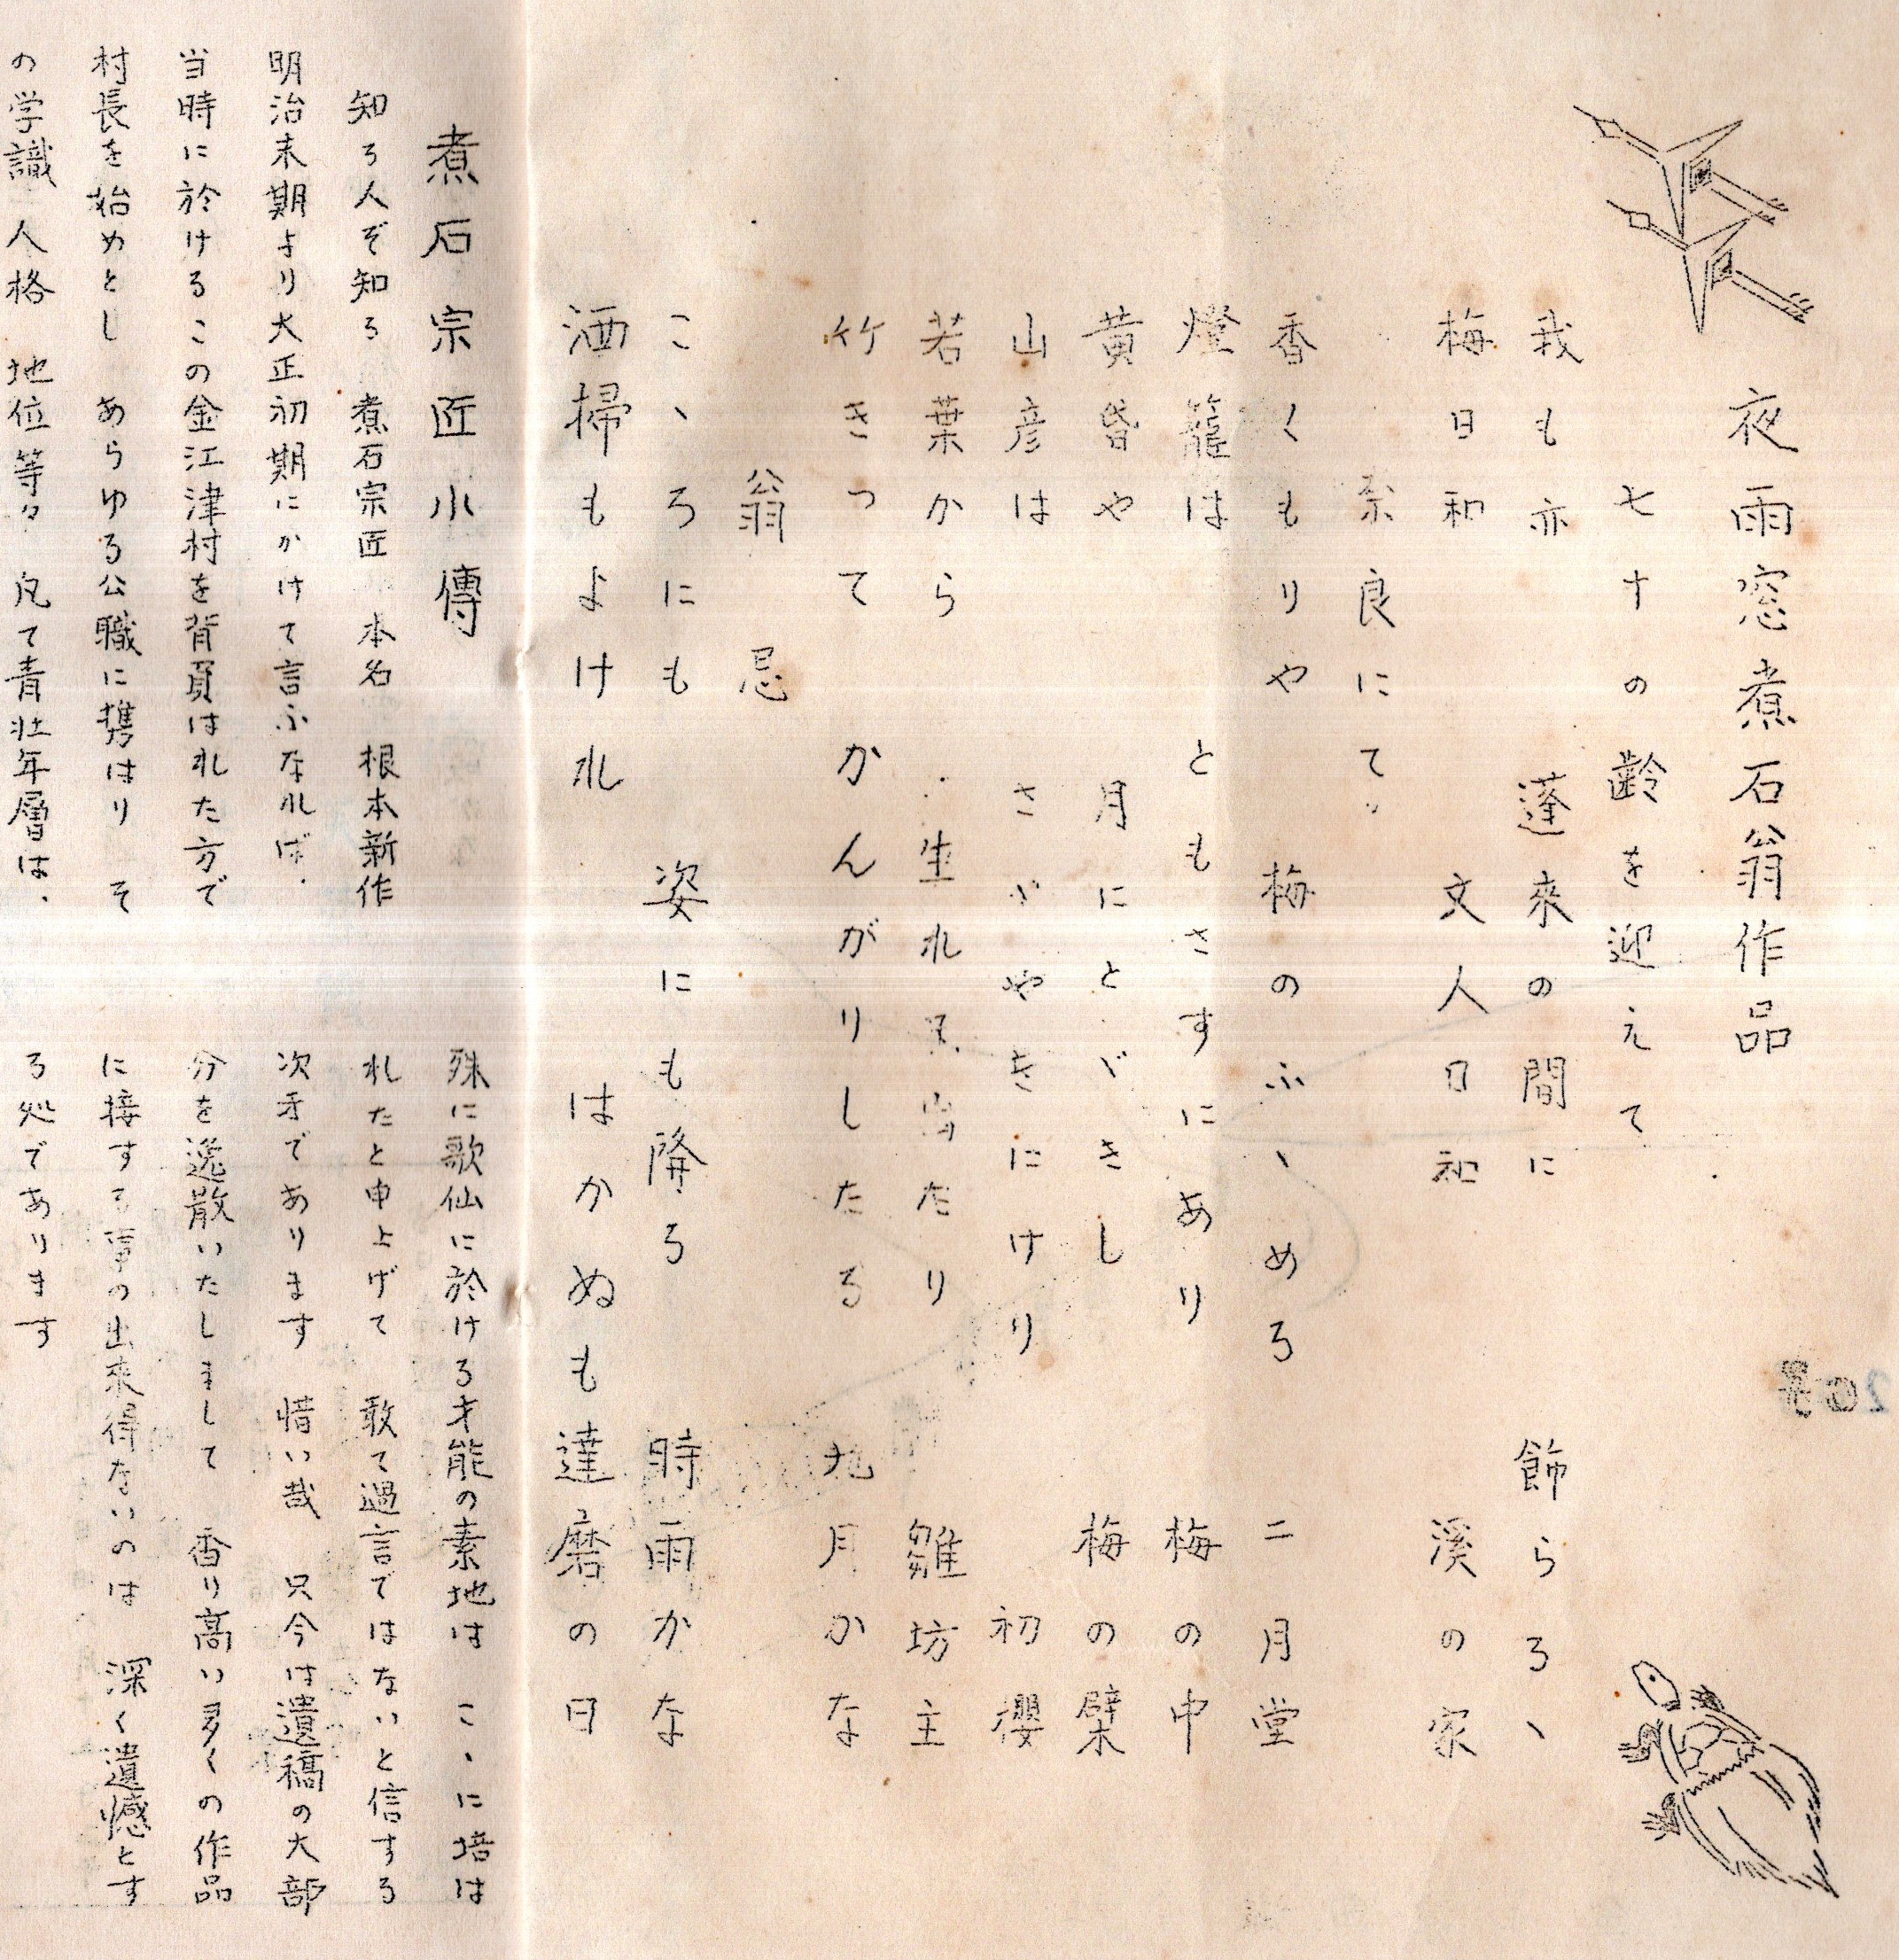 夜雨窓煮石翁作品
七十の齢を迎えて
我も亦 蓬來の間に 飾らろゝ
梅日和 文人日和 溪の家
奈良にて
香くもりや 梅のふゝめろ 二月堂
燈籠は ともさすにあり 梅の中
黄昏や 月にとゞきし 梅の櫱
山彦は さゝやきにけり 初櫻
若葉から 生れ出たり 雛坊主
竹きって かんがりしたる 九月かな
翁忌
こゝろにも 姿にも降ろ 時雨かな
洒掃もよけれ はかぬも達磨の日
煮石宗匠小傳
知ろ人ぞ知ろ 煮石宗匠 本名 根本新作
明治末期より大正初期にかけて言ふなれば、
当時に於けるこの金江津村を背負はれた方で
村長を始めとし あらゆる公職に携はり そ
の学識 人格 地位等々 凡て青壮年層は、
殊に歌仙に於けろ才能の素地は こゝに培は
れたと申上げて 敢て過言ではないと信する
次才であります 惜い哉 只今は遺稿の大部
分を逸散いたしまして 香り高い多くの作品
に接する事の出來得ないのは 深く遺憾とす
ろ処であります
20号